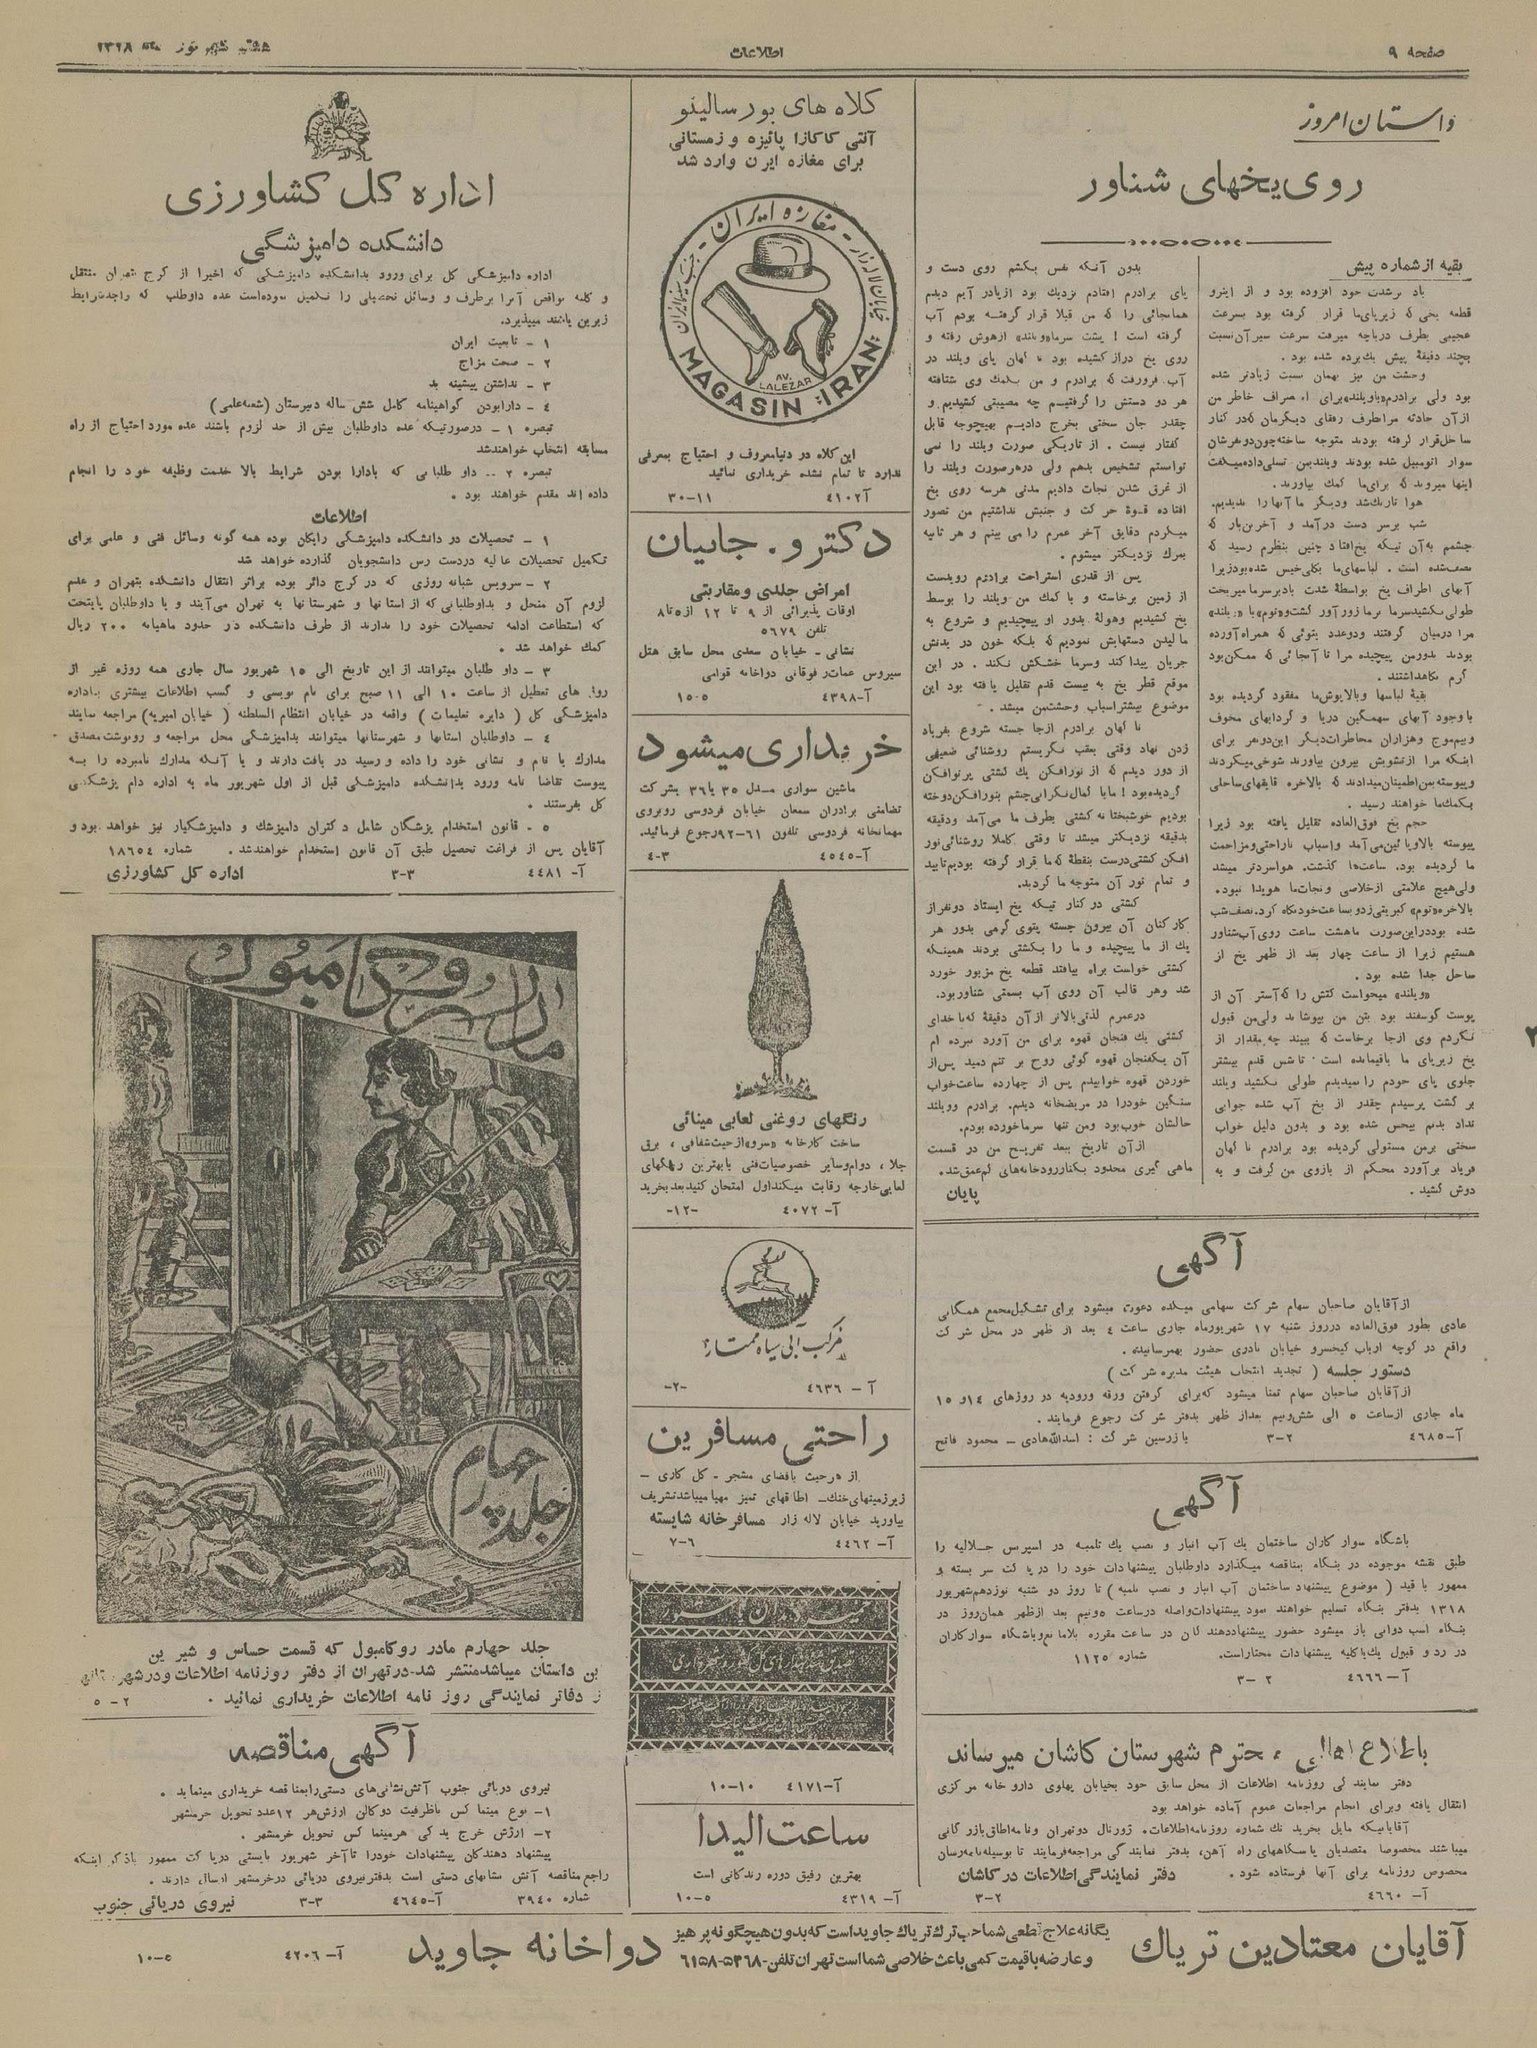 صفحه ۹
اطلاعات
هفتم شهریور ماه ۱۳۱۸
داستان امروز
روی یخهای شناور
بقیه از شماره پیش
باد برشدت خود افزوده بود و از اینرو
قطعه یخی که زیرپای‌ما قرار گرفته بود بسرعت
عجیبی بطرف دریاچه میرفت سرعت سیر آن نسبت
بچند دقیقهٔ پیش یک برده شده بود.
وحشت من نیز بهمان نسبت زیادتر شده
بود ولی برادرم «باویلند» برای انصراف خاطر من
از آن حادثه مرا طرف رفقای دیگرمان که در کنار
ساحل قرار گرفته بودند متوجه ساخته چون دو نفرشان
سوار اتومبیل شده بودند ویلند بمن تسلی داده میگفت
اینها میروند که برای ما کمک بیاورند.
هوا تاریک شد و دیگر ما آنها را ندیدیم.
شب برسر دست درآمد و آخرین بار که
چشمم به آن تیکه یخ افتاد چنین بنظرم رسید که
نصف شده است. لباسهای ما بکلی خیس شده بود زیرا
آبهای اطراف یخ بواسطهٔ شدت باد برسر ما میریخت
طولی نکشید سرما برما زور آور گشت «توم» با «ویلند»
مرا درمیان گرفتند و دو عدد پتوئی که همراه آورده
بودند بدور من پیچیده مرا تا آنجائی که ممکن بود
گرم نگاهداشتند.
بقیهٔ لباسها و بالاپوش‌ما مفقود گردیده بود
با وجود آبهای سهمگین دریا و گردابهای مخوف
و بیم موج و هزاران مخاطرات دیگر این دو نفر برای
اینکه مرا از تشویش بیرون بیاورند شوخی میکردند
و پیوسته بمن اطمینان میدادند که بالاخره قایقهای ساحلی
بکمک ما خواهند رسید.
حجم یخ فوق‌العاده تقلیل یافته بود زیرا
پیوسته بالا و پائین می‌آمد و اسباب ناراحتی و مزاحمت
ما گردیده بود. ساعت‌ها گذشت. هوا سردتر میشد
ولی هیچ علامتی از خلاصی و نجات ما هویدا نبود.
بالاخره «توم» کبریتی زد و بساعت خود نگاه کرد. نصف شب
شده بود در این صورت ما هشت ساعت روی آب شناور
هستیم زیرا از ساعت چهار بعد از ظهر یخ از
ساحل جدا شده بود.
«ویلند» میخواست کتش را که آستر آن از
پوست گوسفند بود بتن من بپوشاند ولی من قبول
نکردم وی از جا برخاست که ببیند چه مقدار از
یخ زیر پای ما باقیمانده است. تا شش قدم بیشتر
جلوی پای خودم را نمیدیدم طولی نکشید ویلند
برگشت پرسیدم چقدر از یخ آب شده جوابی
نداد بدنم بیحس شده بود و بدون دلیل خواب
سختی برمن مستولی گردیده بود برادرم ناگهان
فریاد برآورد محکم از بازوی من گرفت و به
دوش کشید.
بدون آنکه نفس بکشم روی دست و
پای برادرم افتادم نزدیک بود از پا در آیم دیدم
همانجائی را که من قبلا قرار گرفته بودم آب
گرفته است! پشت سر ما «ویلند» از هوش رفته و
روی یخ دراز کشیده بود ناگهان پای ویلند در
آب فرورفت که برادرم و من بکمک وی شتافته
هر دو دستش را گرفتیم چه مصیبتی کشیدیم و
چقدر جان سختی بخرج دادیم بهیچوجه قابل
گفتار نیست. از تاریکی صورت ویلند را نمی
توانستم تشخیص بدهم ولی درهر صورت ویلند را
از غرق شدن نجات دادیم مدتی هرسه روی یخ
افتاده قوهٔ حرکت و جنبش نداشتیم من تصور
میکردم دقایق آخر عمرم را می بینم و هر ثانیه
بمرگ نزدیکتر میشوم.
پس از قدری استراحت برادرم رویدست
از زمین برخاسته و با کمک من ویلند را بوسط
یخ کشیدیم وهولهٔ بدور او پیچیدیم و شروع به
مالیدن دستهایش نمودیم که بلکه خون در بدنش
جریان پیدا کند و سرما خشکش نکند. در این
موقع قطر یخ به بیست قدم تقلیل یافته بود این
موضوع بیشتر اسباب وحشت من میشد.
ناگهان برادرم از جا جسته شروع بفریاد
زدن نهاد وقتی بعقب نگریستم روشنائی ضعیفی
از دور دیدم که از نورافکن یک کشتی پرتوافکن
گردیده بود! ما با کمال نگرانی چشم بنورافکن دوخته
بودیم خوشبختانه کشتی بطرف ما می‌آمد و دقیقه
بدقیقه نزدیکتر میشد تا وقتی کاملا روشنائی نور
افکن کشتی درست بنقطهٔ که ما قرار گرفته بودیم تابید
و تمام نور آن متوجه ما گردید.
کشتی در کنار تیکه یخ ایستاد دو نفر از
کارکنان آن بیرون جسته پتوی گرمی بدور هر
یک از ما پیچیده و ما را بکشتی بردند همینکه
کشتی خواست براه بیافتد قطعه یخ مزبور خورد
شد و هر قالب آن روی آب بسمتی شناور بود.
در عمرم لذتی بالاتر از آن دقیقهٔ که ناخدای
کشتی یک فنجان قهوه برای من آورد نبرده ام
آن یکفنجان قهوه گوئی روح بر تنم دمید پس از
خوردن قهوه خوابیدم پس از چهارده ساعت خواب
سنگین خود را در مریضخانه دیدم. برادرم و ویلند
حالشان خوب بود و من تنها سرما خورده بودم.
از آن تاریخ ببعد تفریح من در قسمت
ماهی گیری محدود بکنار رودخانه‌های کم عمق شد.
پایان
آگهی
از آقایان صاحبان سهام شرکت سهامی میکده دعوت میشود برای تشکیل مجمع همگانی
عادی بطور فوق‌العاده در روز شنبه ۱۷ شهریور ماه جاری ساعت ٤ بعد از ظهر در محل شرکت
واقع در کوچه ارباب کیخسرو خیابان نادری حضور بهمرسانیده.
دستور جلسه ( تجدید انتخاب هیئت مدیره شرکت )
از آقایان صاحبان سهام تمنا میشود که برای گرفتن ورقه ورودیه در روزهای ۱٤ و ۱۵
ماه جاری از ساعت ۵ الی شش و نیم بعد از ظهر بدفتر شرکت رجوع فرمایند.
آ-٤٦۸۵ ۲-۳ بازرسین شرکت : اسدالله هادی – محمود فاتح
آگهی
باشگاه سوارکاران ساختمان یک آب انبار و نصب یک تلمبه در اسپرس جلالیه را
طبق نقشه موجوده در بنگاه بمناقصه میگذارد داوطلبان پیشنهادات خود را در پاکت سر بسته و
ممهور با قید ( موضوع پیشنهاد ساختمان آب انبار و نصب تلمبه ) تا روز دو شنبه نوزدهم شهریور
۱۳۱۸ بدفتر بنگاه تسلیم خواهند نمود پیشنهادات واصله در ساعت ۵ ونیم بعد از ظهر همان روز در
بنگاه اسب دوانی باز میشود حضور پیشنهاد دهندگان در ساعت مقرره بلامانع و باشگاه سوارکاران
در رد و قبول یک یا کلیه پیشنهادات مختار است. شماره ۱۱۲۵
آ-٤٦٦٦ ۲-۳
باطلاع اهالی محترم شهرستان کاشان میرساند
دفتر نمایندگی روزنامه اطلاعات از محل سابق خود بخیابان پهلوی داروخانه مرکزی
انتقال یافته و برای انجام مراجعات عموم آماده خواهد بود
آقایانیکه مایل بخرید تک شماره روزنامه اطلاعات. ژورنال دو تهران و نامه اطاق بازرگانی
میباشند مخصوصا متصدیان باسگاههای راه آهن، بدفتر نمایندگی مراجعه فرمایند تا بوسیله نامه رسان
مخصوص روزنامه برای آنها فرستاده شود. دفتر نمایندگی اطلاعات در کاشان
آ-٤٦٦۰ ۲-۳
کلاه های بورسالینو
آنتی کاکازا پائیزه و زمستانی
برای مغازه ایران وارد شد
مغازه ایران
خیابان لاله زار
AV. LALEZAR
MAGASIN IRAN
این کلاه در دنیا معروف و احتیاج بمعرفی
ندارد تا تمام نشده خریداری نمائید
آ ٤۱۰۲ ۱۱-۳۰
دکتر و. جانیان
امراض جلدی و مقاربتی
اوقات پذیرائی از ۹ تا ۱۲ از ۵ تا ۸
تلفن ۵٦۷۹
نشانی - خیابان سعدی محل سابق هتل
سیروس عمارت فوقانی دواخانه قوامی
آ-٤۳۹۸ ۵-۱۵
خریداری میشود
ماشین سواری مدل ۳۵ یا ۳٦ بشرکت
تضامنی برادران سمعان خیابان فردوسی روبروی
مهمانخانه فردوسی تلفون ٦۱-۹۲ رجوع فرمائید.
آ-٤۵٤۵ ۳-٤
رنگهای روغنی لعابی مینائی
ساخت کارخانه «سرو» از حیث شفافی ، برق
جلا ، دوام و سایر خصوصیات فنی با بهترین رنگهای
لعابی خارجه رقابت میکند اول امتحان کنید بعد بخرید
آ-٤۰۷۲ -۱۲-
مرکب آبی سیاه ممتاز
آ - ٤٦۳٦ -۲-
راحتی مسافرین
از هرحیث با فضای مشجر - گل کاری -
زیرزمینهای خنک- اطاقهای تمیز مهیا میباشد تشریف
بیاورید خیابان لاله زار مسافرخانه شایسته
آ- ٤٤٦۲ ٦-۷
آ-٤۱۷۱ ۱۰-۱۰
ساعت الیدا
بهترین رفیق دوره زندگانی است
آ- ٤۳۱۹ ۵-۱۰
اداره کل کشاورزی
دانشکده دامپزشگی
اداره دامپزشگی کل برای ورود بدانشکده دامپزشگی که اخیرا از کرج بتهران منتقل
و کلیه نواقص آنرا برطرف و وسائل تحصیلی را تکمیل نموده است عده داوطلب که واجد شرایط
زیرین باشند میپذیرد.
۱ - تابعیت ایران
۲ - صحت مزاج
۳ - نداشتن پیشینه بد
٤ - دارا بودن گواهینامه کامل شش ساله دبیرستان (شعبه علمی)
تبصره ۱ - درصورتیکه عده داوطلبان بیش از حد لزوم باشند عده مورد احتیاج از راه
مسابقه انتخاب خواهند شد
تبصره ۲ - داو طلبانی که با دارا بودن شرایط بالا خدمت وظیفه خود را انجام
داده اند مقدم خواهند بود.
اطلاعات
۱ - تحصیلات در دانشکده دامپزشکی رایگان بوده همه گونه وسائل فنی و علمی برای
تکمیل تحصیلات عالیه در دست رس دانشجویان گذارده خواهد شد
۲ - سرویس شبانه روزی که در کرج دائر بوده براثر انتقال دانشکده بتهران و عدم
لزوم آن منحل و بداوطلبانی که از استانها و شهرستانها به تهران می‌آیند و یا داوطلبان پایتخت
که استطاعت ادامه تحصیلات خود را ندارند از طرف دانشکده در حدود ماهیانه ۲۰۰ ریال
کمک خواهد شد.
۳ - داو طلبان میتوانند از این تاریخ الی ۱۵ شهریور سال جاری همه روزه غیر از
روزهای تعطیل از ساعت ۱۰ الی ۱۱ صبح برای نام نویسی و کسب اطلاعات بیشتری باداره
دامپزشگی کل ( دایره تعلیمات ) واقعه در خیابان انتظام السلطنه ( خیابان امیریه) مراجعه نمایند
٤ - داوطلبان استانها و شهرستانها میتوانند بدامپزشگی محل مراجعه و رونوشت مصدق
مدارک با نام و نشانی خود را داده و رسید دریافت دارند و یا آنکه مدارک نامبرده را به
پیوست تقاضا نامه ورود بدانشکده دامپزشگی قبل از اول شهریور ماه به اداره دام پزشگی
کل بفرستند.
۵ - قانون استخدام پزشگان شامل دکتران دامپزشک و دامپزشکیار نیز خواهد بود و
آقایان پس از فراغت تحصیل طبق آن قانون استخدام خواهند شد. شماره ۱۸٦۵٤
آ- ٤٤۸۱ ۳-۳ اداره کل کشاورزی
مادر روکامبول
جلد چهارم
جلد چهارم مادر روکامبول که قسمت حساس و شیرین
این داستان میباشد منتشر شد- در تهران از دفتر روزنامه اطلاعات و در شهرستانها
از دفاتر نمایندگی روز نامه اطلاعات خریداری نمائید. ۲-۵
آگهی مناقصه
نیروی دریائی جنوب آتش نشانی‌های دستی را بمناقصه خریداری مینماید.
۱- نوع مینماکس با ظرفیت دو گالن ارزش هر ۱۲ عدد تحویل خرمشهر
۲- ارزش خرج یدکی هر مینماکس تحویل خرمشهر.
پیشنهاد دهندگان پیشنهادات خود را تا آخر شهریور بایستی در پاکت ممهور با ذکر اینکه
راجع مناقصه آتش نشانهای دستی است بدفتر نیروی دریائی در خرمشهر ارسال دارند.
شماره ۳۹٤۰ آ-٤٦٤۵ ۳-۳ نیروی دریائی جنوب
آقایان معتادین تریاک
یگانه علاج قطعی شما حب ترک تریاک جاوید است که بدون هیچگونه پرهیز
و عارضه با قیمت کمی باعث خلاصی شما است تهران تلفن-۵۳٦۸-٦۱۵۸
دواخانه جاوید
آ- ٤۲۰٦ ۵-۱۰